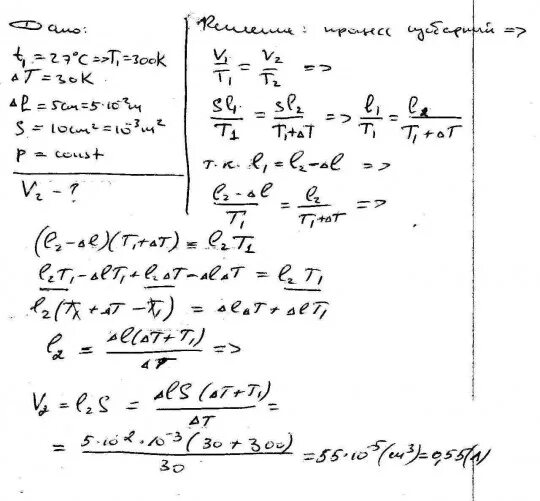 Дано:
t₁ = 27°C => T₁ = 300K
ΔT = 30K
Δl = 5cm = 5·10⁻²м
S = 10cm² = 10⁻³м²
p = const
V₂ - ?
Решение: процесс изобарный =>
V₁/T₁ = V₂/T₂ =>
Sl₁/T₁ = Sl₂/(T₁+ΔT) => l₁/T₁ = l₂/(T₁+ΔT)
т.к. l₁ = l₂-Δl =>
(l₂-Δl)/T₁ = l₂/(T₁+ΔT) =>
(l₂-Δl)(T₁+ΔT) = l₂T₁
l₂T₁-ΔlT₁+l₂ΔT-ΔlΔT = l₂T₁
l₂(T₁+ΔT-T₁) = ΔlΔT+ΔlT₁
l₂ = Δl(ΔT+T₁)/ΔT =>
V₂ = l₂S = ΔlS(ΔT+T₁)/ΔT =
= 5·10⁻²·10⁻³(30+300)/30 = 55·10⁻⁵(м³) = 0,55(л)